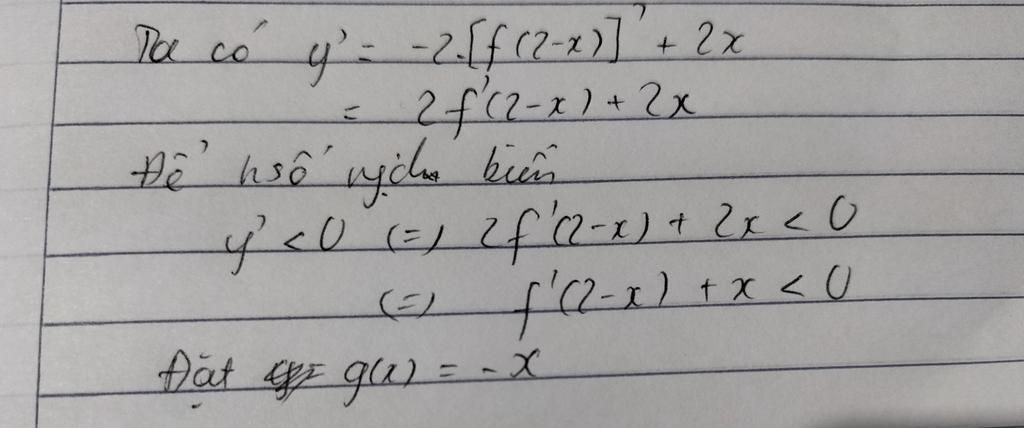 Ta có y' = -2.[f(2-x)]' + 2x
= 2f'(2-x) + 2x
Để hsố nghịch biến
y' < 0 (=) 2f'(2-x) + 2x < 0
(=) f'(2-x) + x < 0
Đặt g(x) = -x